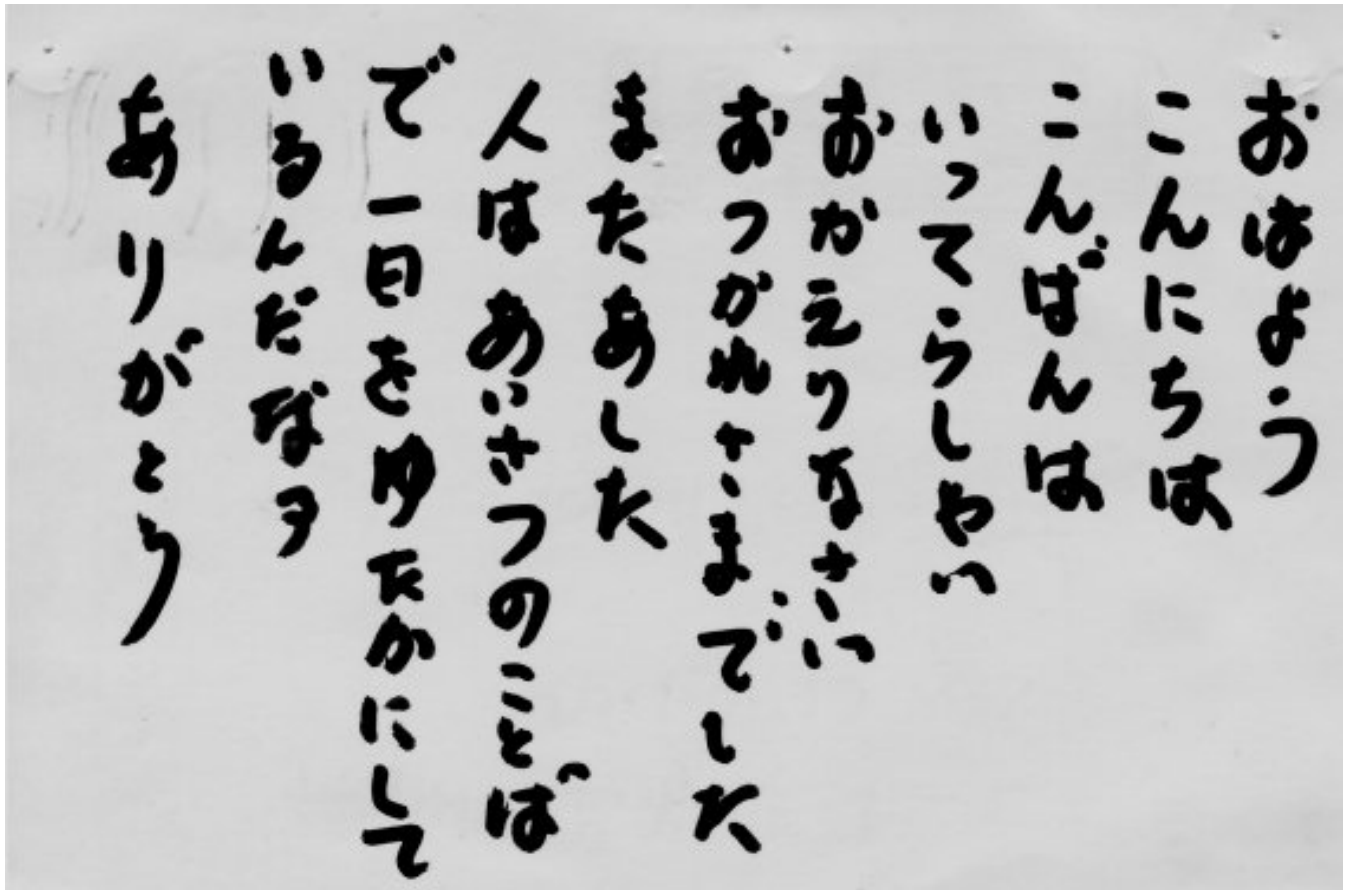 おはよう
こんにちは
こんばんは
いってらしゃい
おかえりなさい
おつかれさまでした
またあした
人はあいさつのことば
で一日をゆたかにして
いるんだなァ
ありがとう